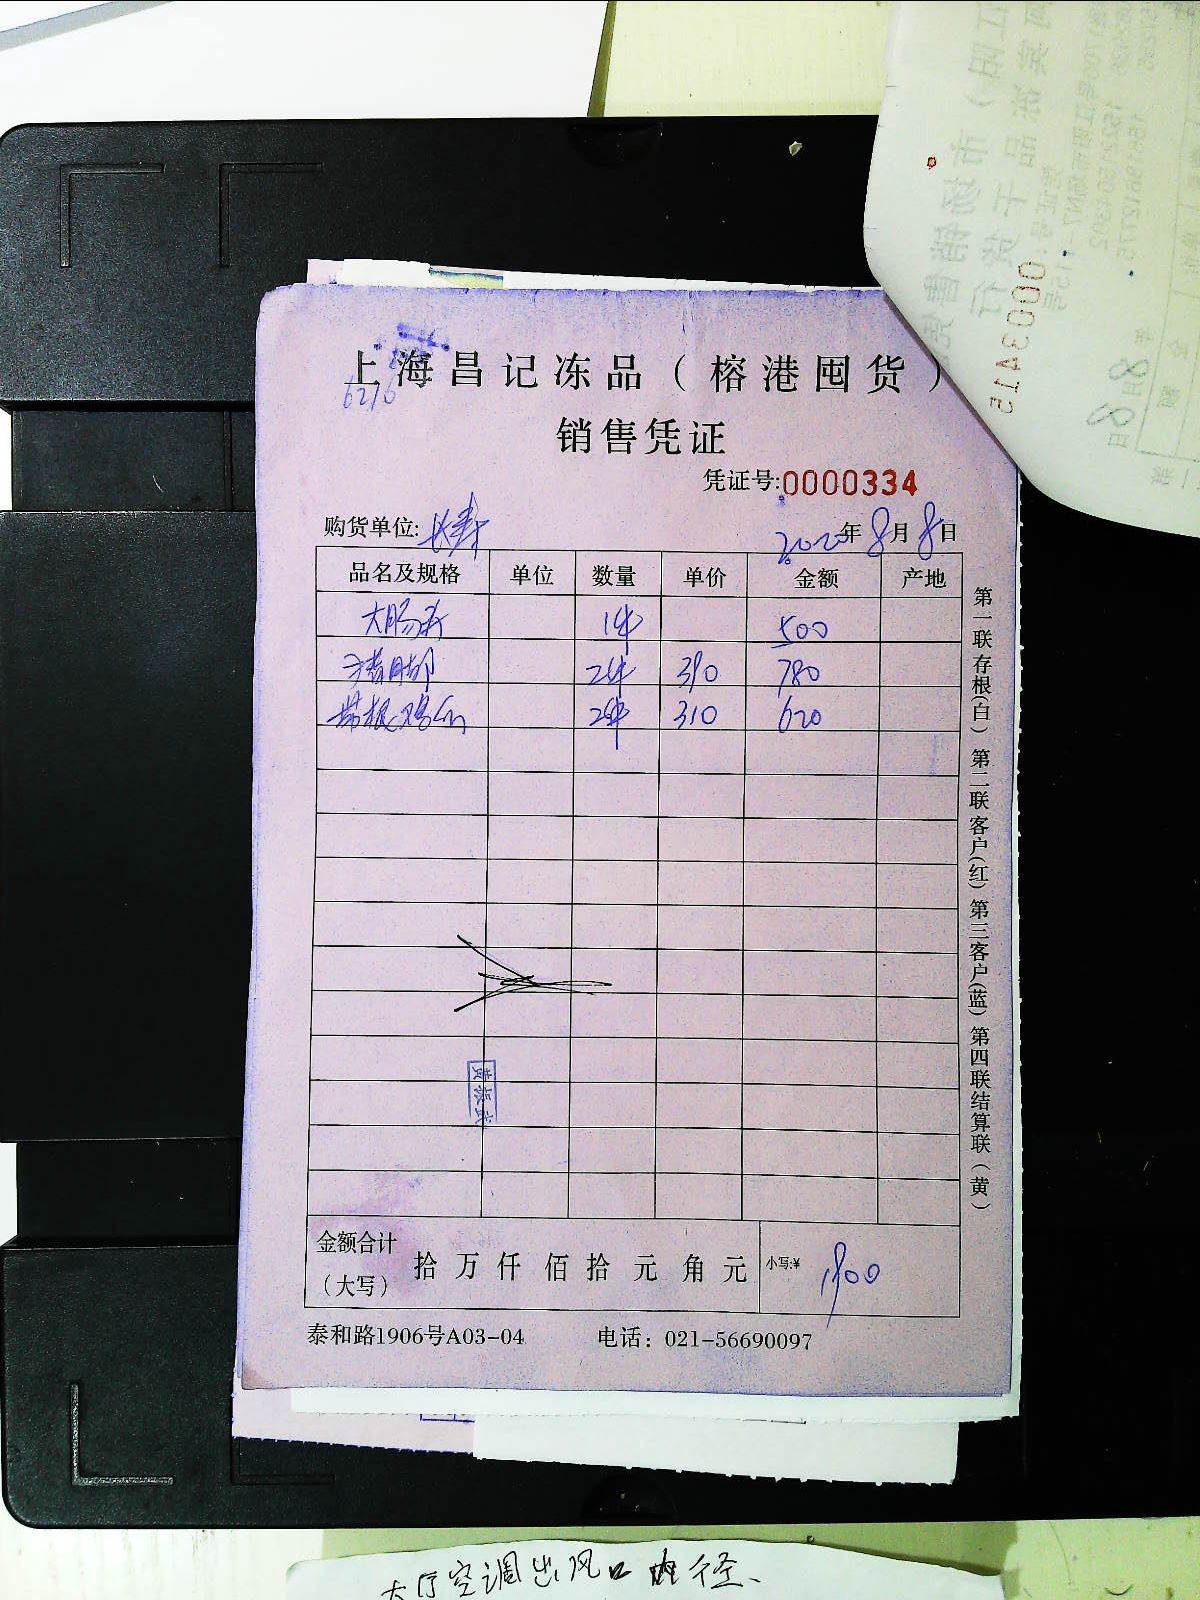 上海昌记冻品（榕港囤货）
6216
销售凭证
凭证号:0000334
购货单位:长寿 2020年8月8日
品名及规格 单位 数量 单价 金额 产地
大肠头 1件 500
猪脚 2件 390 780
带根 2件 310 620
金额合计（大写） 拾 万 仟 佰 拾 元 角 元 小写:¥ 1900
泰和路1906号A03-04 电话：021-56690097
第一联存根(白) 第二联客户(红) 第三客户(蓝) 第四联结算联（黄）
0003415
8月8日
大厅空调出风口内径、